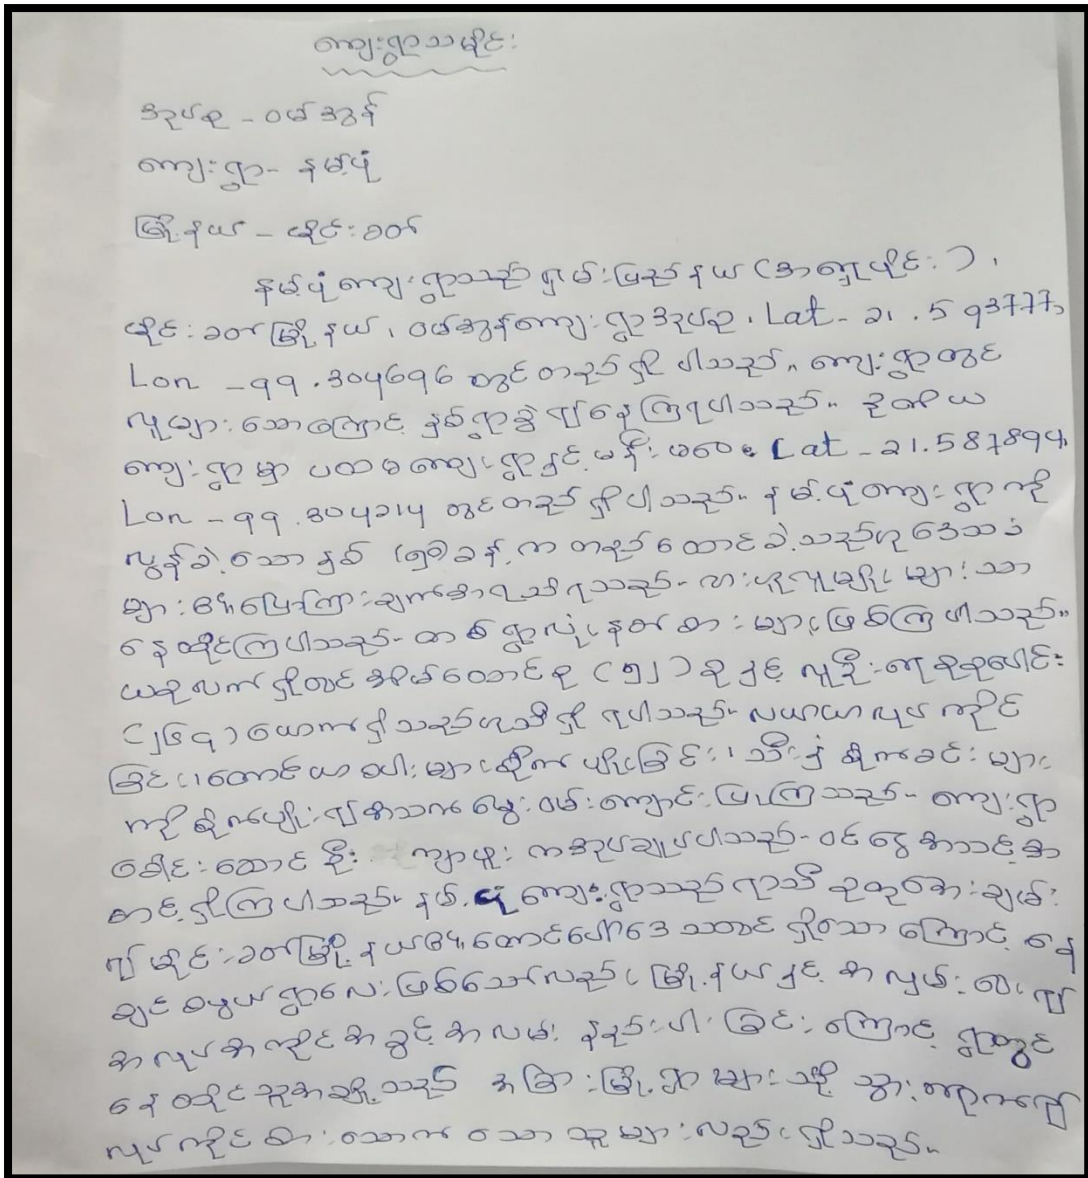 ကျေးရွာသမိုင်း
အုပ်စု - ဝမ်အွန်
ကျေးရွာ - နမ့်ပုံ
မြို့နယ် - မိုင်းခတ်
နမ့်ပုံကျေးရွာသည် ရှမ်းပြည်နယ် (အရှေ့ပိုင်း)၊
မိုင်းခတ်မြို့နယ်၊ ဝမ်အွန်ကျေးရွာအုပ်စု၊ Lat - 21.593777,
Lon - 99.304696 တွင်တည်ရှိပါသည်။ ကျေးရွာတွင်
လူများသောကြောင့် နှစ်ရွာခွဲ၍နေကြရပါသည်။ ဒုတိယ
ကျေးရွာမှာ ပထမကျေးရွာနှင့် မနီးမဝေး Lat - 21.587894,
Lon - 99.304214 တွင်တည်ရှိပါသည်။ နမ့်ပုံကျေးရွာကို
လွန်ခဲ့သောနှစ် ခန့်က တည်ထောင်ခဲ့သည်ဟု ဒေသခံ
များ၏ပြောကြားချက်အရသိရသည်။ လားဟူလူမျိုးများသာ
နေထိုင်ကြပါသည်။ တစ်ရွာလုံးနတ်စားများဖြစ်ကြပါသည်။
ယခုလက်ရှိတွင် အိမ်ထောင်စု (၅၂) စုနှင့် လူဦးရေစုစုပေါင်း
ယောက်ရှိသည်ဟုသိရှိရပါသည်။ လယ်ယာလုပ်ကိုင်
ခြင်း၊ တောင်ယာစပါးများစိုက်ပျိုးခြင်း၊ သီးနှံစိုက်ခင်းများ
ကိုစိုက်ပျိုး၍အသက်မွေးဝမ်းကျောင်းပြုကြသည်။ ကျေးရွာ
ခေါင်းဆောင် ဦးကျာဖူးကအုပ်ချုပ်ပါသည်။ ဝင်ငွေအသင့်အ
တင့်ရှိကြပါသည်။ နမ့်ပုံကျေးရွာသည် ရာသီဥတုအေးချမ်း
၍ မိုင်းခတ်မြို့နယ်၏တောင်ပေါ်ဒေသတွင်ရှိသောကြောင့် နေ
ချင်စဖွယ်ရွာလေးဖြစ်သော်လည်း မြို့နယ်နှင့် အလှမ်းဝေး၍
အလုပ်အကိုင်အခွင့်အလမ်း နည်းပါးခြင်းကြောင့် ရွာတွင်
နေထိုင်သူအချို့သည် အခြားမြို့ရွာများသို့ သွားရောက်၍
လုပ်ကိုင်စားသောက်သောသူများလည်းရှိသည်။